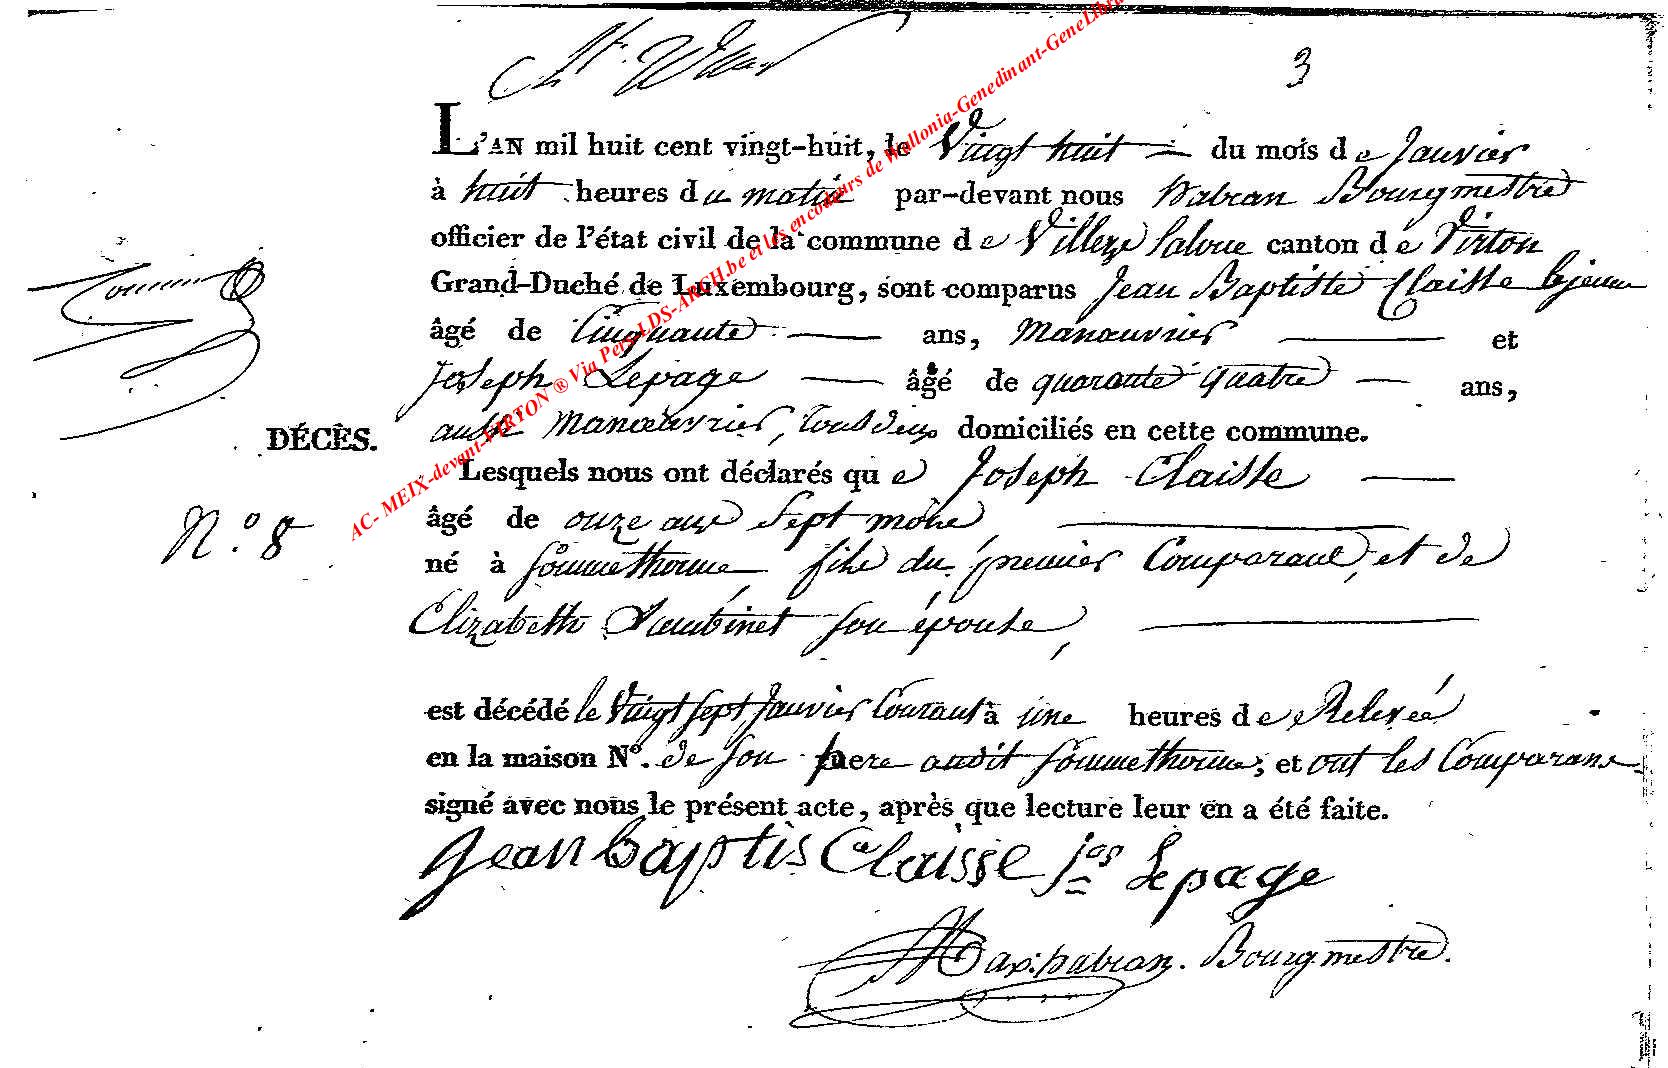 3
L'AN mil huit cent vingt-huit, le Vingt huit du mois de Janvier
à huit heures du matin par-devant nous habran Bourgmestre
officier de l'état civil de la commune de Villers la loue canton de Virton
Grand-Duché de Luxembourg, sont comparus Jean Baptiste Claisse lejeune
âgé de Cinquante ans, Manœuvrier et
Joseph Lepage âgé de quarante quatre ans,
aussi Manœuvrier, tous deux domiciliés en cette commune.
DÉCÈS.
Lesquels nous ont déclarés que Joseph Claisse
N.° 8
âgé de onze ans Sept mois
né à Sommethonne, fils du premier Comparant, et de
Elizabeth son épouse,
est décédé le Vingt sept Janvier Courant à une heures de Relevée
en la maison N°. de son pere audit Sommethonne; et ont les Comparans
signé avec nous le présent acte, après que lecture leur en a été faite.
Jean baptis Claisse Jos Lepage
Max. habran. Bourgmestre.
AC- MEIX-devant-VIRTON ® Via Pers-LDS-ARCH.be et les encodeurs de Wallonia-Genedinant-GeneLibr